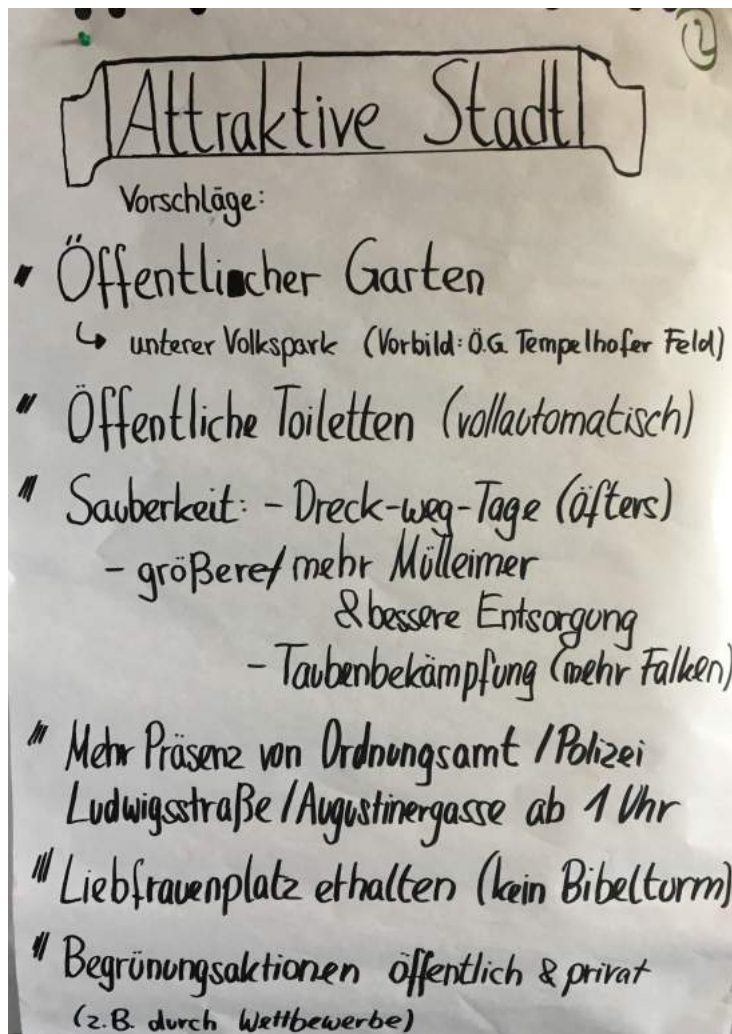 2
Attraktive Stadt
Vorschläge:
Öffentlicher Garten
↳ unterer Volkspark (Vorbild: Ö.G. Tempelhofer Feld)
Öffentliche Toiletten (vollautomatisch)
Sauberkeit: - Dreck-weg-Tage (öfters)
- größere/ mehr Mülleimer
& bessere Entsorgung
- Taubenbekämpfung (mehr Falken)
Mehr Präsenz von Ordnungsamt / Polizei
Ludwigsstraße / Augustinergasse ab 1 Uhr
Liebfrauenplatz erhalten (kein Bibelturm)
Begrünungsaktionen öffentlich & privat
(z.B. durch Wettbewerbe)